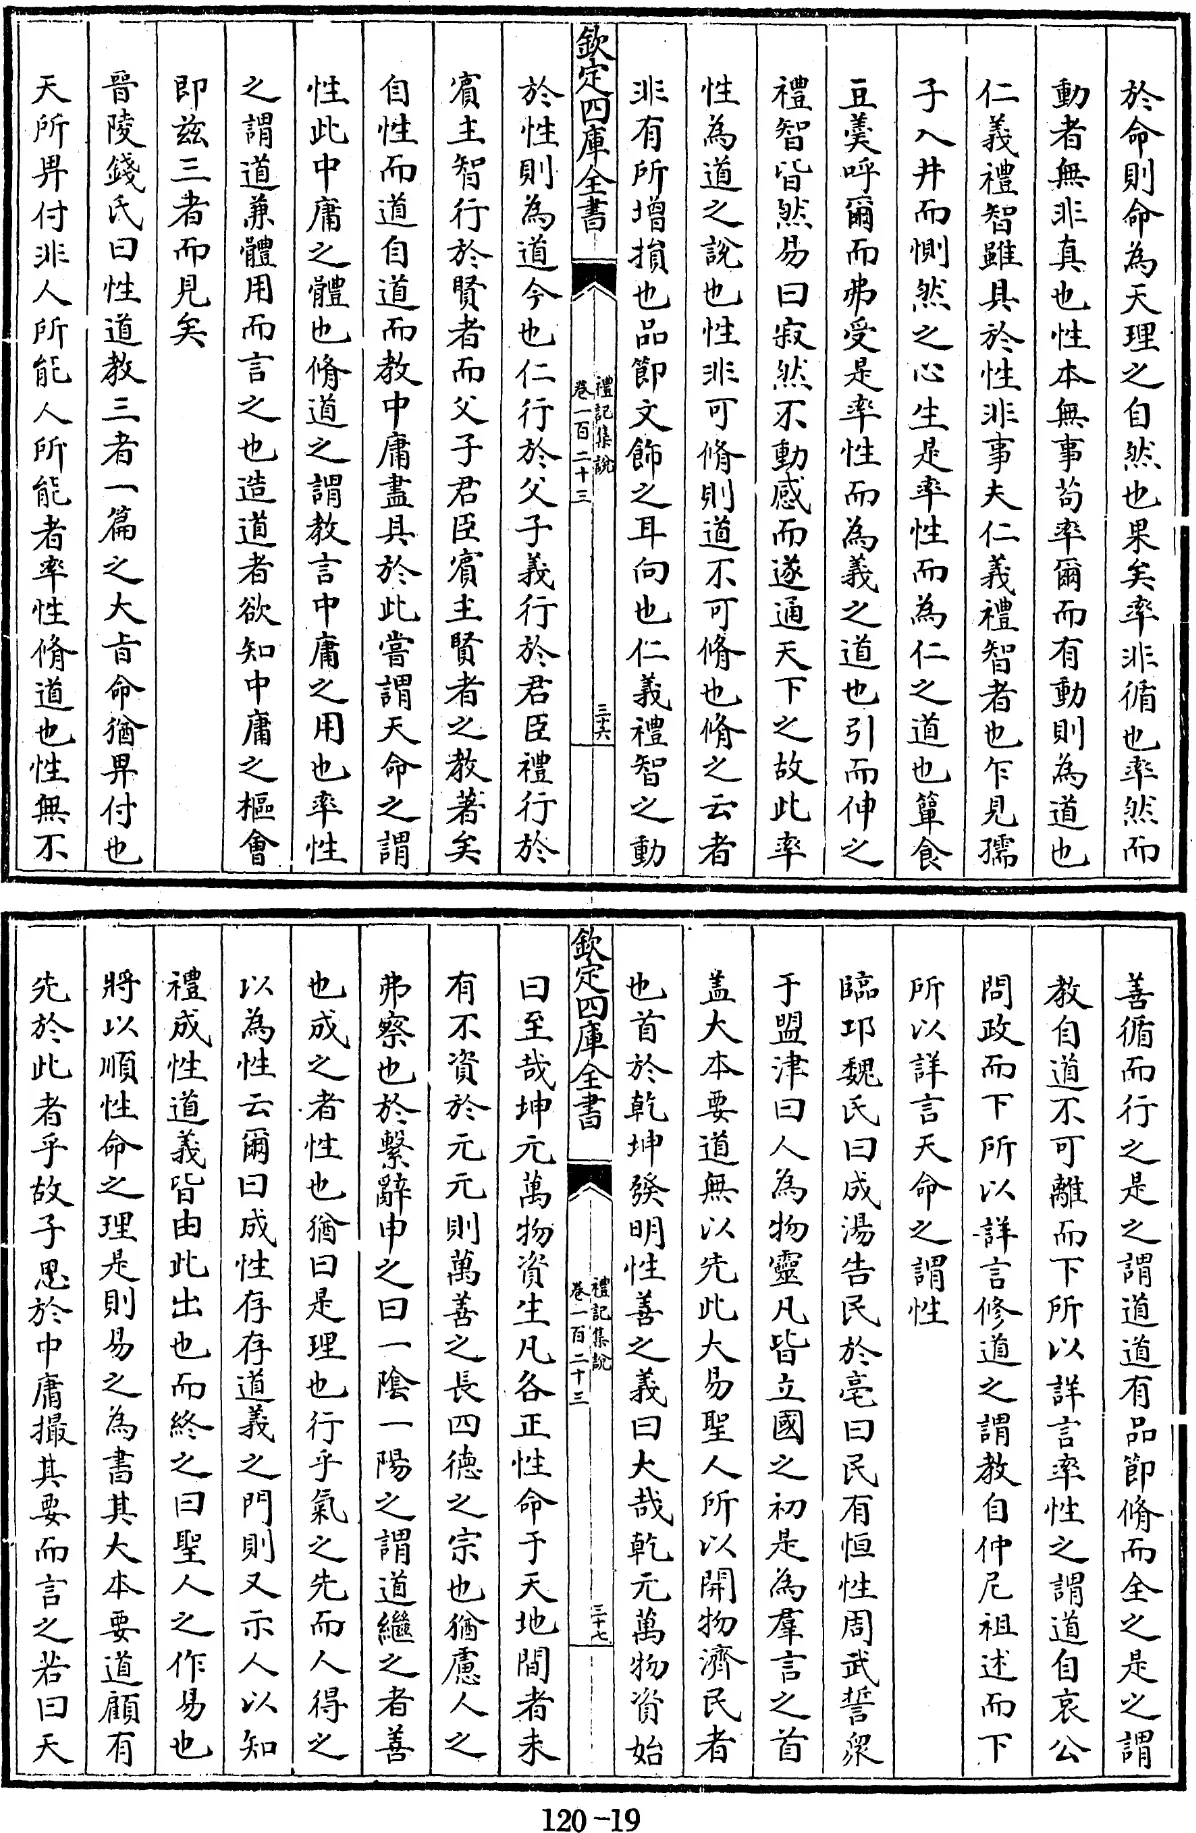 於命則命為天理之自然也果矣率非循也率然而
動者無非真也性本無事苟率爾而有動則為道也
仁義禮智雖具於性非事夫仁義禮智者也乍見孺
子入井而惻然之心生是率性而為仁之道也簞食
豆羹呼爾而弗受是率性而為義之道也引而伸之
禮智皆然易曰寂然不動感而遂通天下之故此率
性為道之說也性非可脩則道不可脩也脩之云者
非有所增損也品節文飾之耳向也仁義禮智之動
欽定四庫全書
禮記集說
卷一百二十三
三十六
於性則為道今也仁行於父子義行於君臣禮行於
賓主智行於賢者而父子君臣賓主賢者之教著矣
自性而道自道而教中庸盡具於此嘗謂天命之謂
性此中庸之體也脩道之謂教言中庸之用也率性
之謂道兼體用而言之也造道者欲知中庸之樞會
即兹三者而見矣
晉陵錢氏曰性道教三者一篇之大㫖命猶畀付也
天所畀付非人所能人所能者率性脩道也性無不
善循而行之是之謂道道有品節脩而全之是之謂
教自道不可離而下所以詳言率性之謂道自哀公
問政而下所以詳言修道之謂教自仲尼祖述而下
所以詳言天命之謂性
臨邛魏氏曰成湯告民於亳曰民有恒性周武誓衆
于盟津曰人為物靈凡皆立國之初是為羣言之首
盖大本要道無以先此大易聖人所以開物濟民者
也首於乾坤發明性善之義曰大哉乾元萬物資始
欽定四庫全書
禮記集說
卷一百二十三
三十七
曰至哉坤元萬物資生凡各正性命于天地間者未
有不資於元元則萬善之長四德之宗也猶慮人之
弗察也於繫辭申之曰一陰一陽之謂道繼之者善
也成之者性也猶曰是理也行乎氣之先而人得之
以為性云爾曰成性存存道義之門則又示人以知
禮成性道義皆由此出也而終之曰聖人之作易也
將以順性命之理是則易之為書其大本要道顧有
先於此者乎故子思於中庸撮其要而言之若曰天
120-19